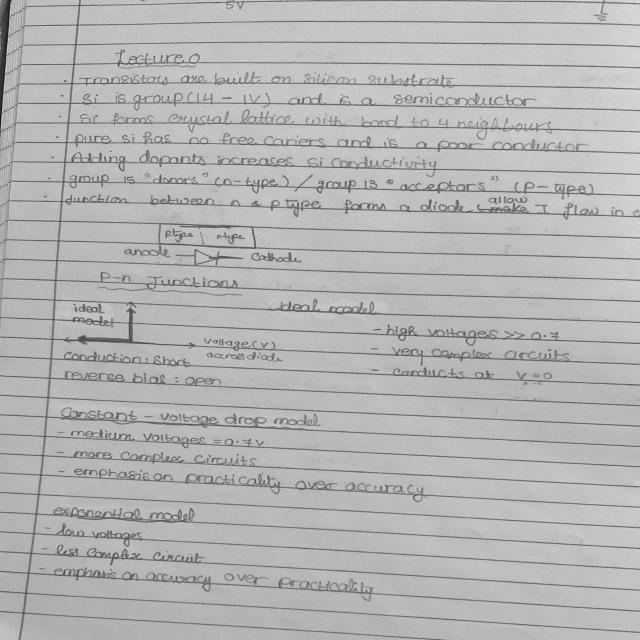 5V
Lecture 0
· Transistors are built on silicon substrate
· Si is group (14 - IV) and is a semiconductor
· Si forms crystal lattice with bond to 4 neighbours
· pure si has no free cariers and is a poor conductor
· Adding dopants increases si conductivity
· group 15 "donors" (n-type) / group 13 "acceptors" (p-type)
· Junction between n & p type forms a diode. allow make I flow in
ptype | ntype
anode cathode
P-n Junctions
ideal model
ideal model
- high voltages >> 0.7
- very complex circuits
- conducts at V=0
voltage (v) across diode
conduction: short
reverse bias: open
Constant - voltage drop model
- medium voltages = 0.7v
- more complex circuits
- emphasis on practicality over accuracy
exponential model
- low voltages
- less complex circuit
- emphasis on accuracy over practicality